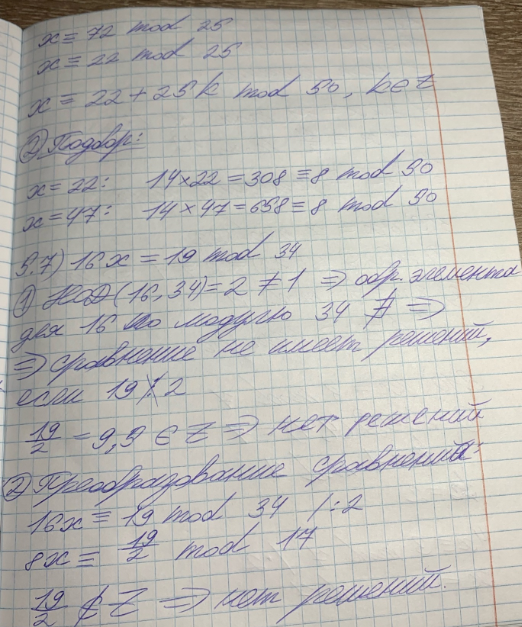 x ≡ 72 mod 25
x ≡ 22 mod 25
x = 22 + 25k mod 50, k ∈ Z
② Подбор:
x = 22: 14×22 = 308 ≡ 8 mod 50
x = 47: 14×47 = 658 ≡ 8 mod 50
5.7) 16x ≡ 19 mod 34
① НОД(16, 34) = 2 ≠ 1 ⇒ обр. элемента
для 16 по модулю 34 ∄ ⇒
⇒ сравнение не имеет решений,
если 19 ⋮̸ 2
19/2 = 9,5 ∈ Z ⇒ нет решений
② Преобразование сравнений:
16x ≡ 19 mod 34 / :2
8x ≡ 19/2 mod 17
19/2 ∉ Z ⇒ нет решений.